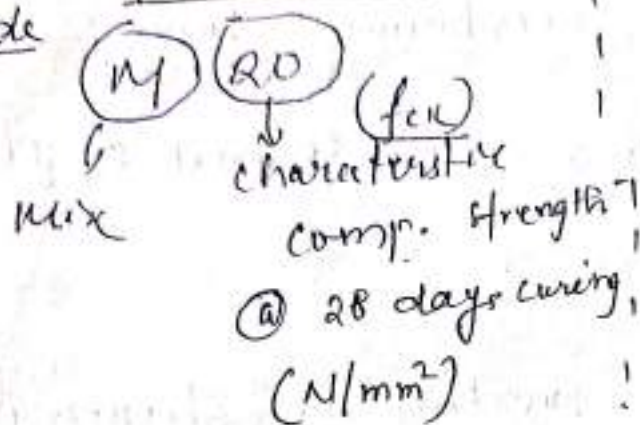 de
M 20
(fck)
Mix
characteristic
comp. strength
@ 28 days curing
(N/mm²)